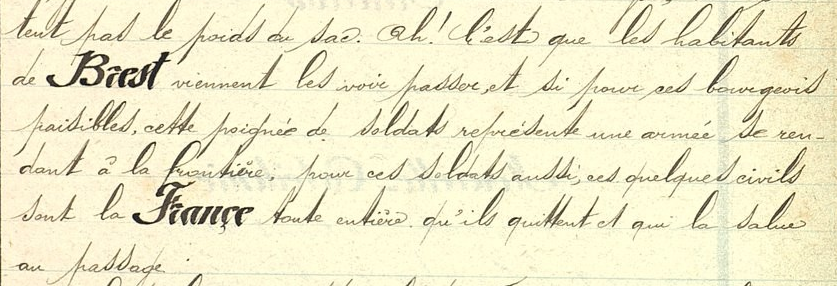 tent pas le poids du sac. Ah! C'est que les habitants
de Brest viennent les voir passer, et si pour ces bourgeois
paisibles, cette poignée de soldats représente une armée se ren-
dant à la frontière, pour ces soldats aussi, ces quelques civils
sont la France toute entière qu'ils quittent et qui la salue
au passage.